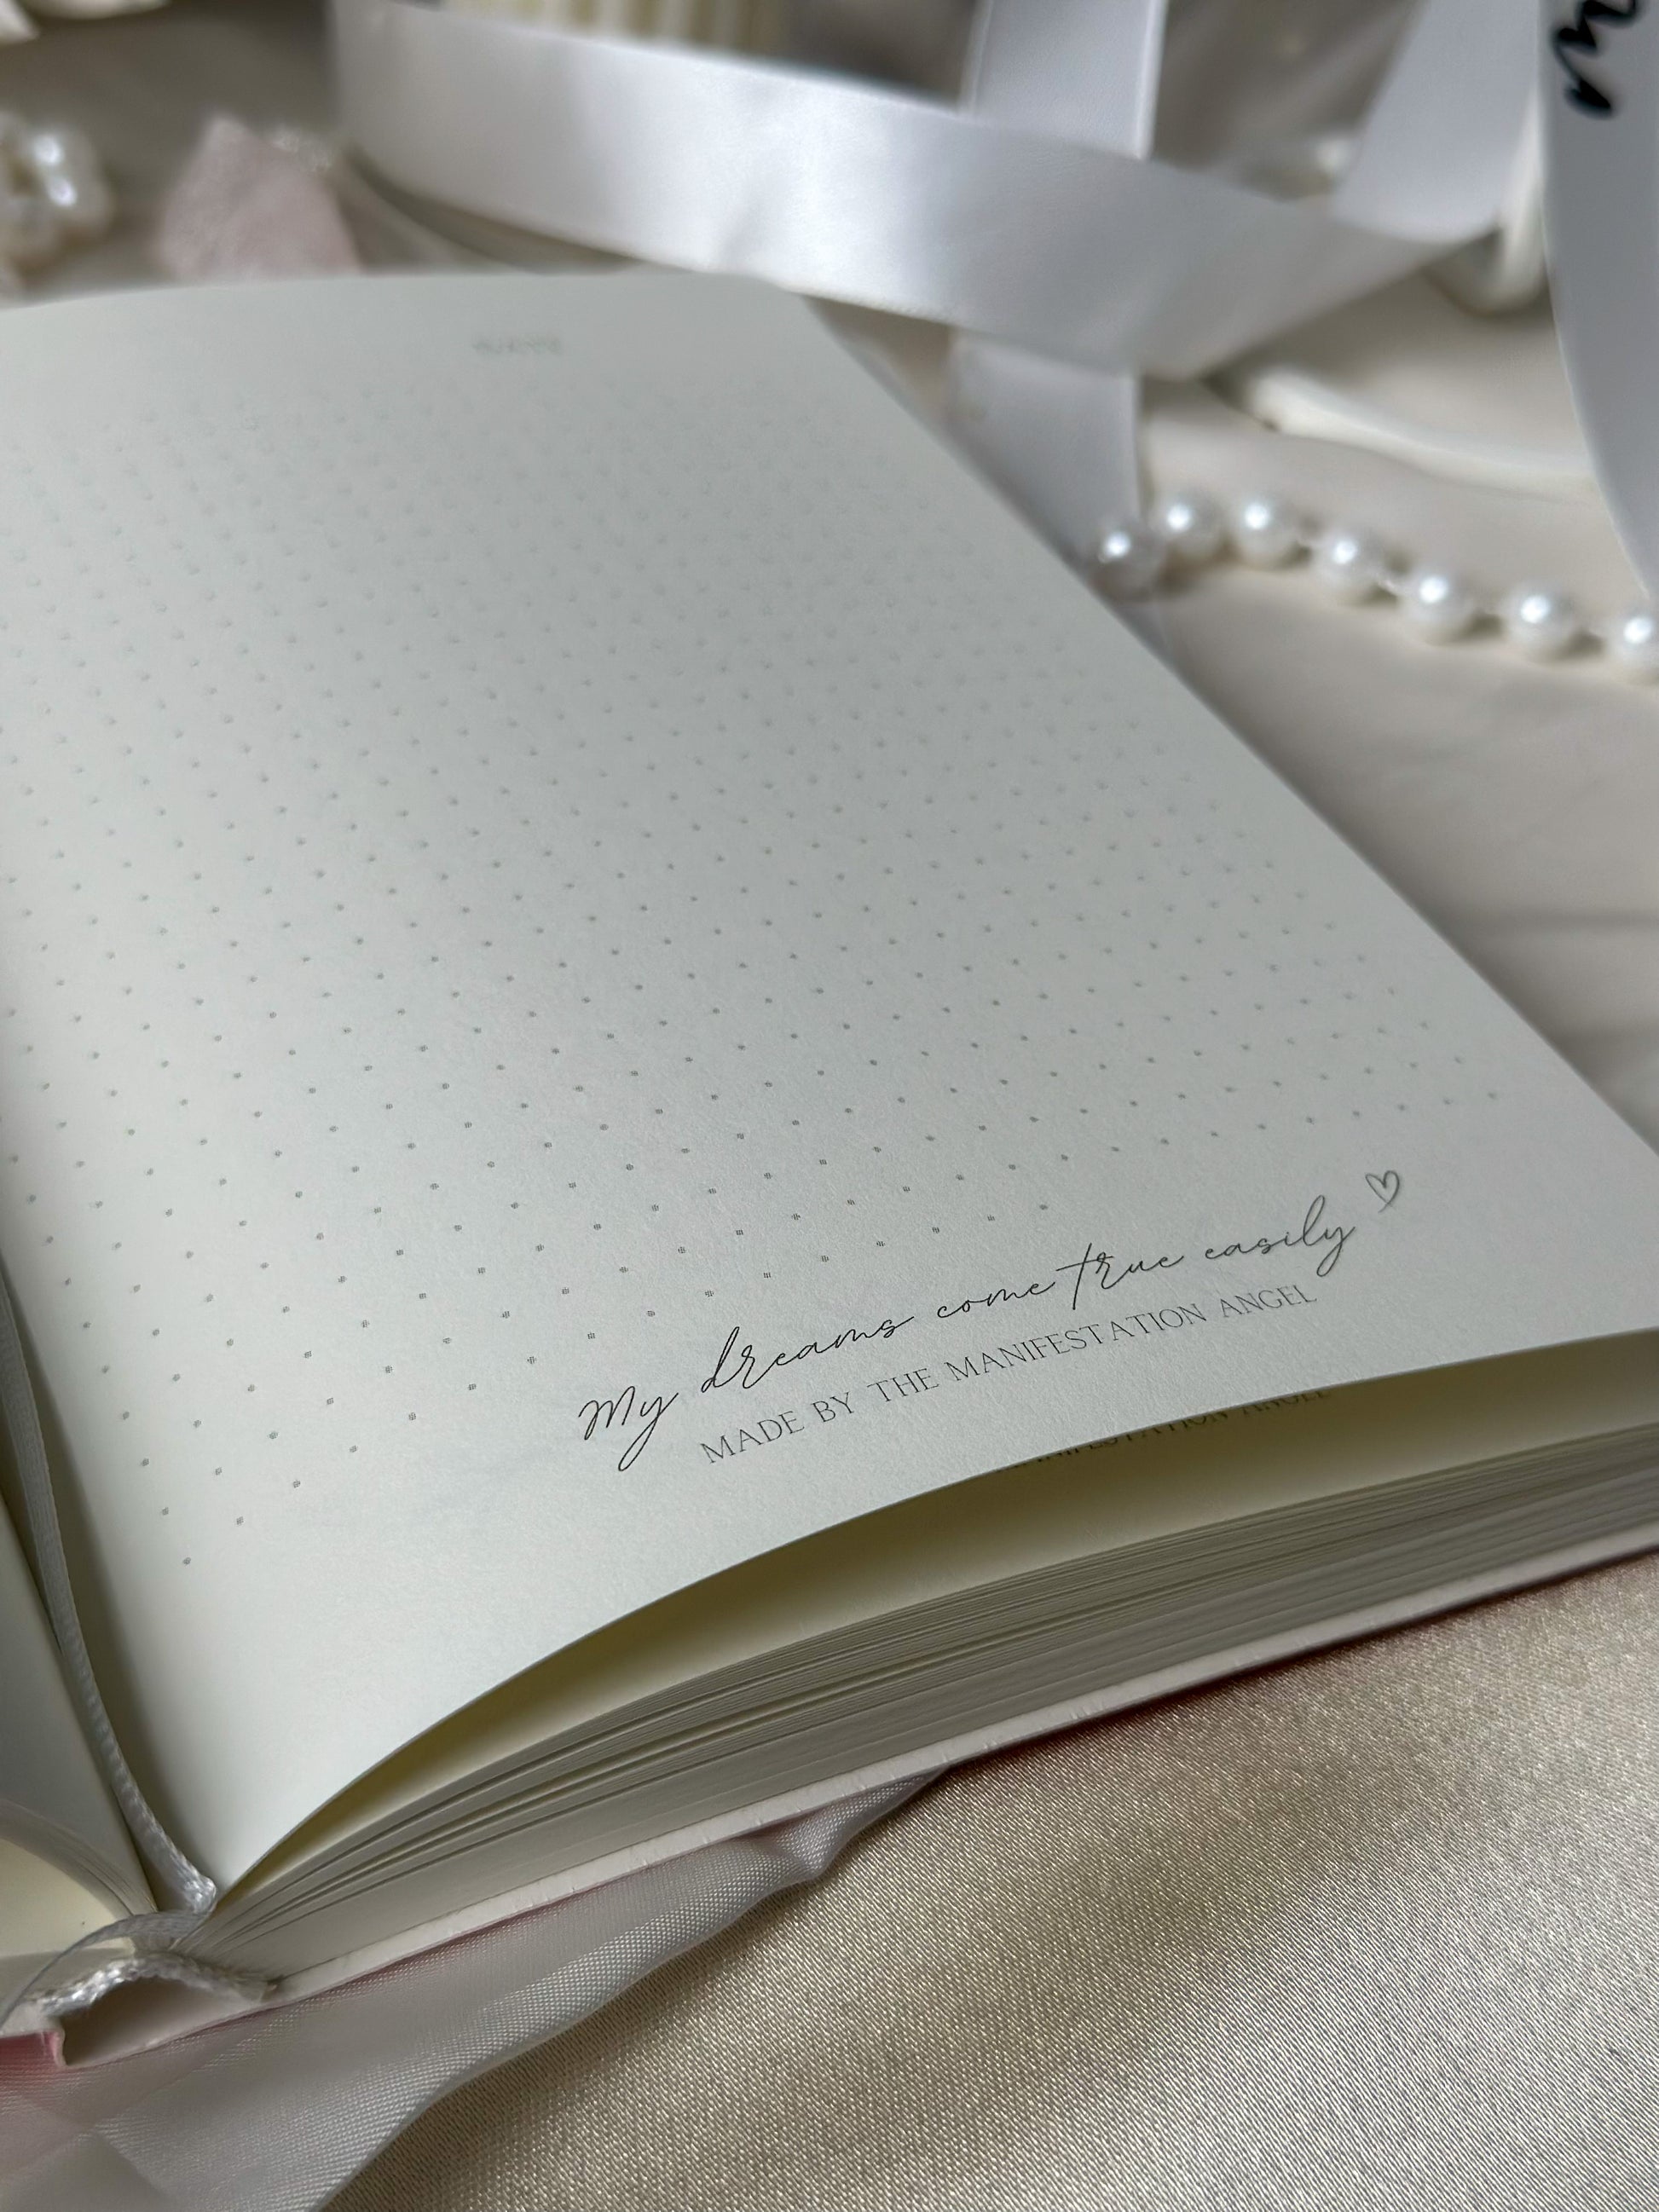 My dreams come true easily ♡
MADE BY THE MANIFESTATION ANGEL
MANIFESTATION ANGEL